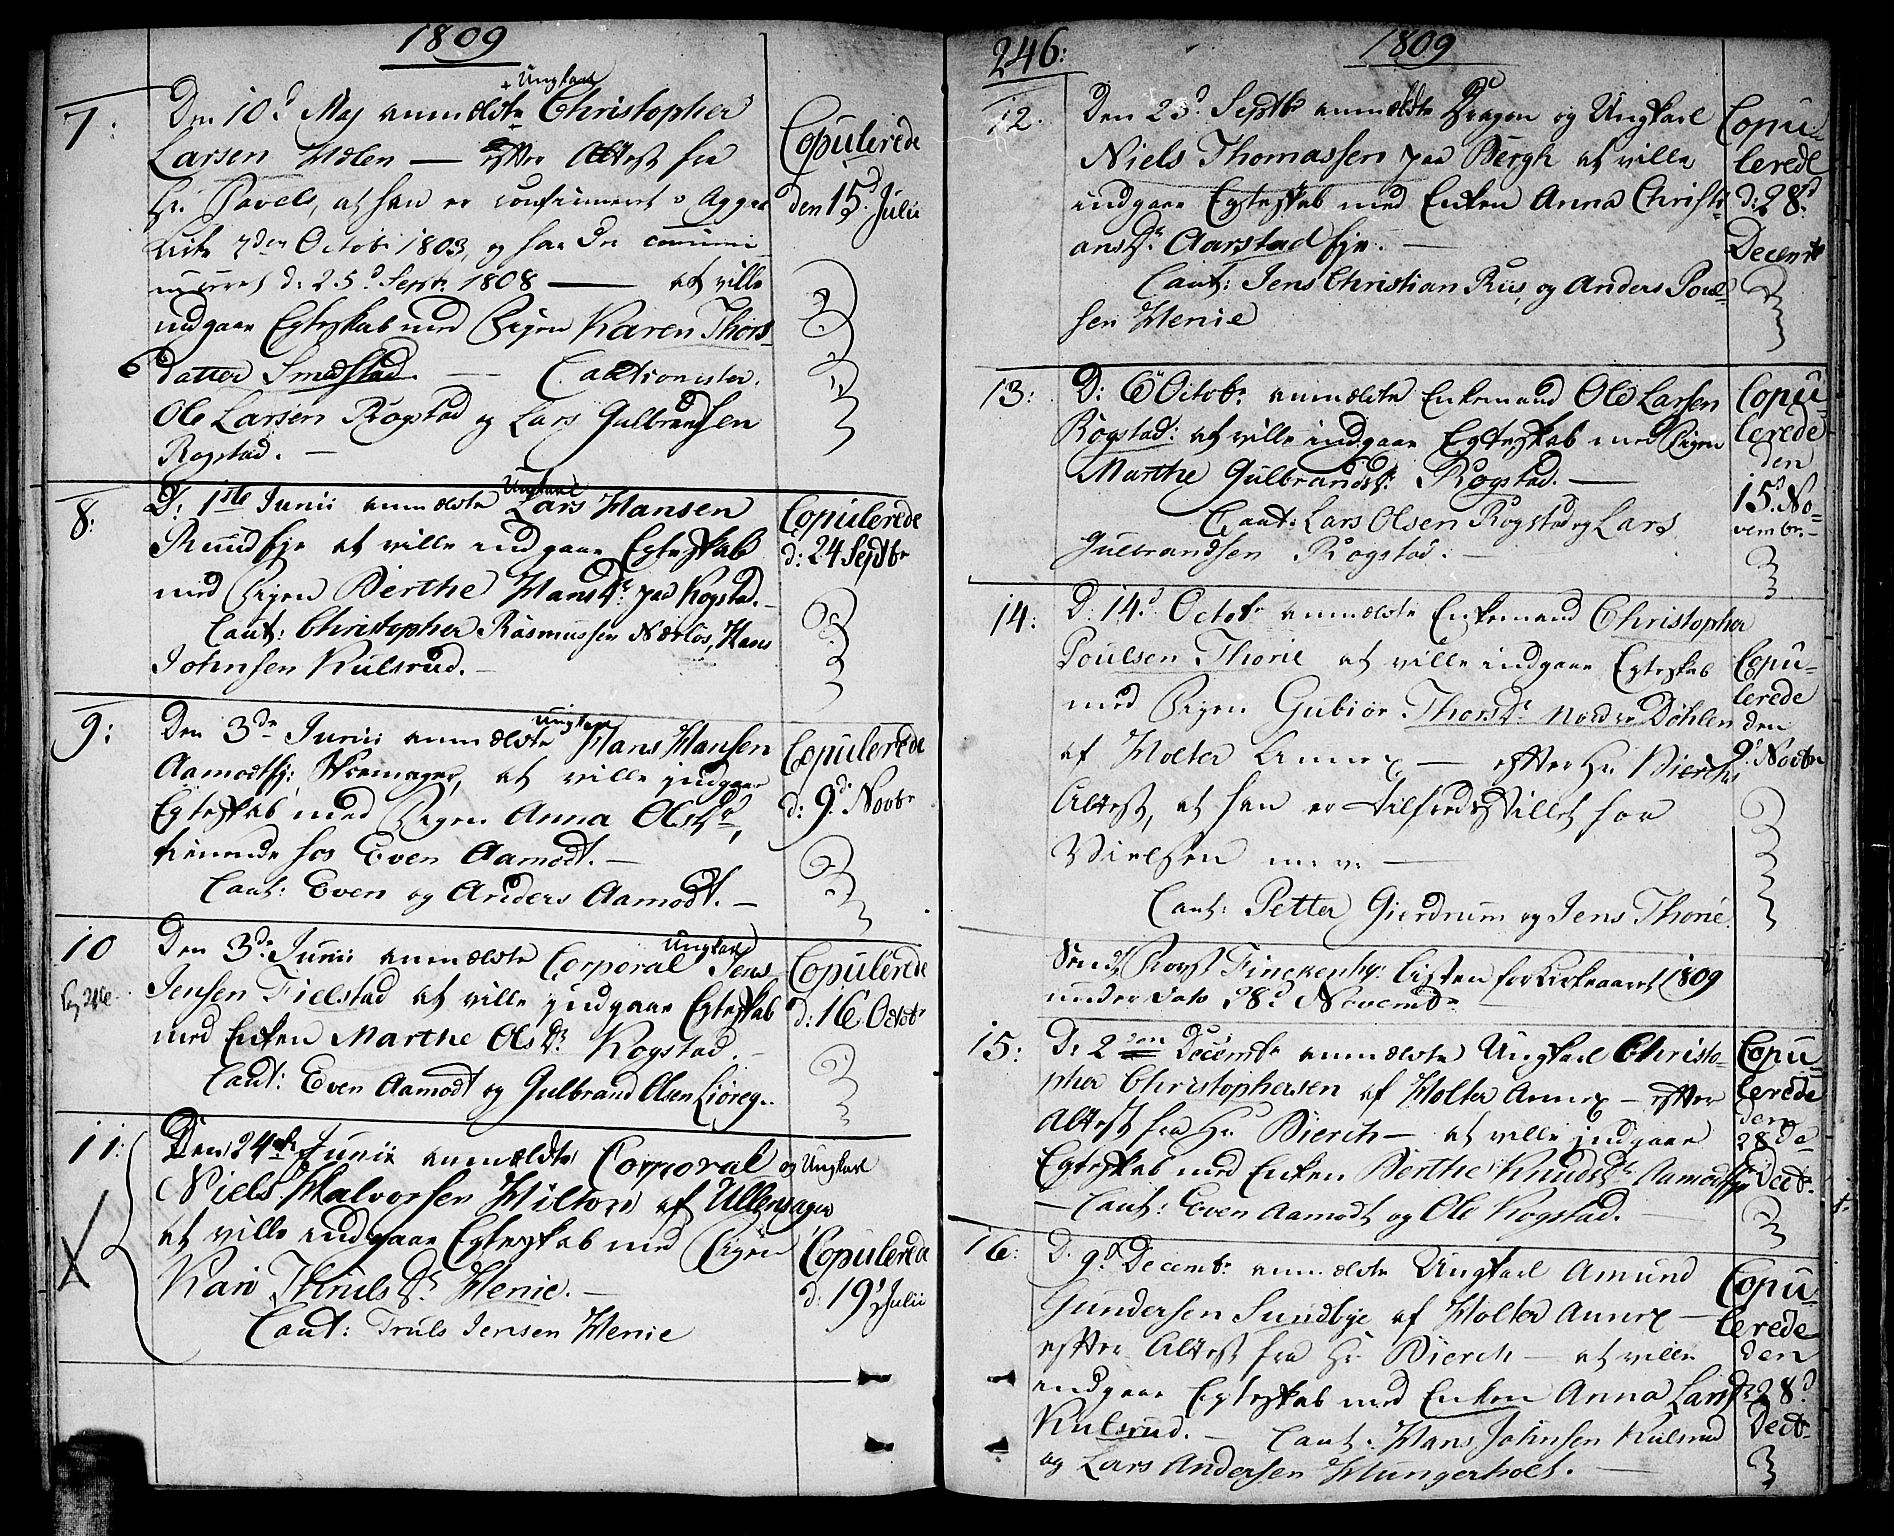 1809
7:
Den 10d Maj anmeldte + Ungkarl Christopher
Larsen Holen — efter Attest fra
Hr. Pavels, at han er confirmert i Agger
Kirke 2den Octobr 1803, og har der communi
d: 25d Septr 1808 — at ville
indgaae Egteskab med Pigen Karen Thors
datter Smedstad. — Cautionister
Ole Larsen Rogstad og Lars Gulbrandsen
Rogstad. —
Copulerede
den 15d Julii
8:
D: 1ste Junii anmeldte Ungkarl Lars Hansen
Ruudeje at ville indgaae Egteskab
med Pigen Berthe Hansdr. paa Rogstad. —
Caut: Christopher Rasmussen Nærløs, Hans
Johnsen Kulsrud. —
Copulerede
d: 24 Septbr
9:
Den 3de Junii anmeldte Ungkarl Hans Hansen
Aamodtej: Skomager, at ville indgaae
Egteskab med Pigen Anna Olsdr,
tienende hos Even Aamodt. —
Caut: Even og Anders Aamodt. —
Copulerede
d: 9d Novbr
10
Den 3de Junii anmeldte Corporal Ungkarl Jens
Jensen Fielstad at ville indgaae Egteskab
med Enken Marthe Olsdr Rogstad. —
Caut: Even Aamodt og Gulbrand Olsen Liøreg.
Copulerede
d: 16 Octobr
11:
Den 24de Junii anmeldte Corporal og Ungkarl
Niels Halvorsen Hilton af Ullensager
at ville indgaae Egteskab med Pigen
Kari Thrulsdr Henie. —
Caut: Truls Jensen Henie
Copulerede
d: 19d Julii
246:
1809
12.
Den 23d Septbr anmeldte Dragon og Ungkarl
Niels Thomassen paa Bergh at ville
indgaae Egteskab med Enken Anna Christi
ansdr. Aarstad eje. —
Caut: Jens Christian Rus, og Anders Poul-
sen Henie
Copu-
lerede
d: 28d
Decembr
13:
D: 6 Octobr anmeldte Enkemand Ole Larsen
Rogstad: at ville indgaae Egteskab med Pigen
Marthe Gulbrandsdr: Rogstad. —
Caut: Lars Olsen Rogstad og Lars
Gulbrandsen Rogstad. —
Copu-
lerede
den
15d No-
vembr. —
14:
D: 14d Octobr anmeldte Enkemand Christopher
Poulsen Thorie at ville indgaae Egteskab
med Pigen Gubiør Thorsdr Nordre Døhlen
af Holter Annex — efter Hr Bierchs
Attest, at han er tilfredsstillet for
Vielsen —
Caut: Petter Gierdrum og Jens Thorie.
Copu-
lerede
den
9d Novbr
Sendt Provst Finckenhr: Listen for Kirkeaaret 1809
under Dato 28d Novembr
15:
D: 2den Decembr anmeldte Ungkarl Christo-
pher Christophersen af Holter Annex — efter
Attest fra Hr. Bierch — at ville indgaae
Egteskab med Enken Berthe Knudsdr Aamodteje
— Caut: Even Aamodt og Ole Rogstad. —
Copu
lerede
den
28de
Decbr.
16:
D. 9d Decembr anmeldte Ungkarl Amund
Gundersen Sundbye af Holter Annex —
efter Attest fra Hr Bierch — at ville
indgaae Egteskab med Enken Anna Larsdr
Kulsrud. — Caut: Hans Johnsen Kulsrud
og Lars Andersen Hungerholt. —
Copu-
lerede
den
28d
Decbr